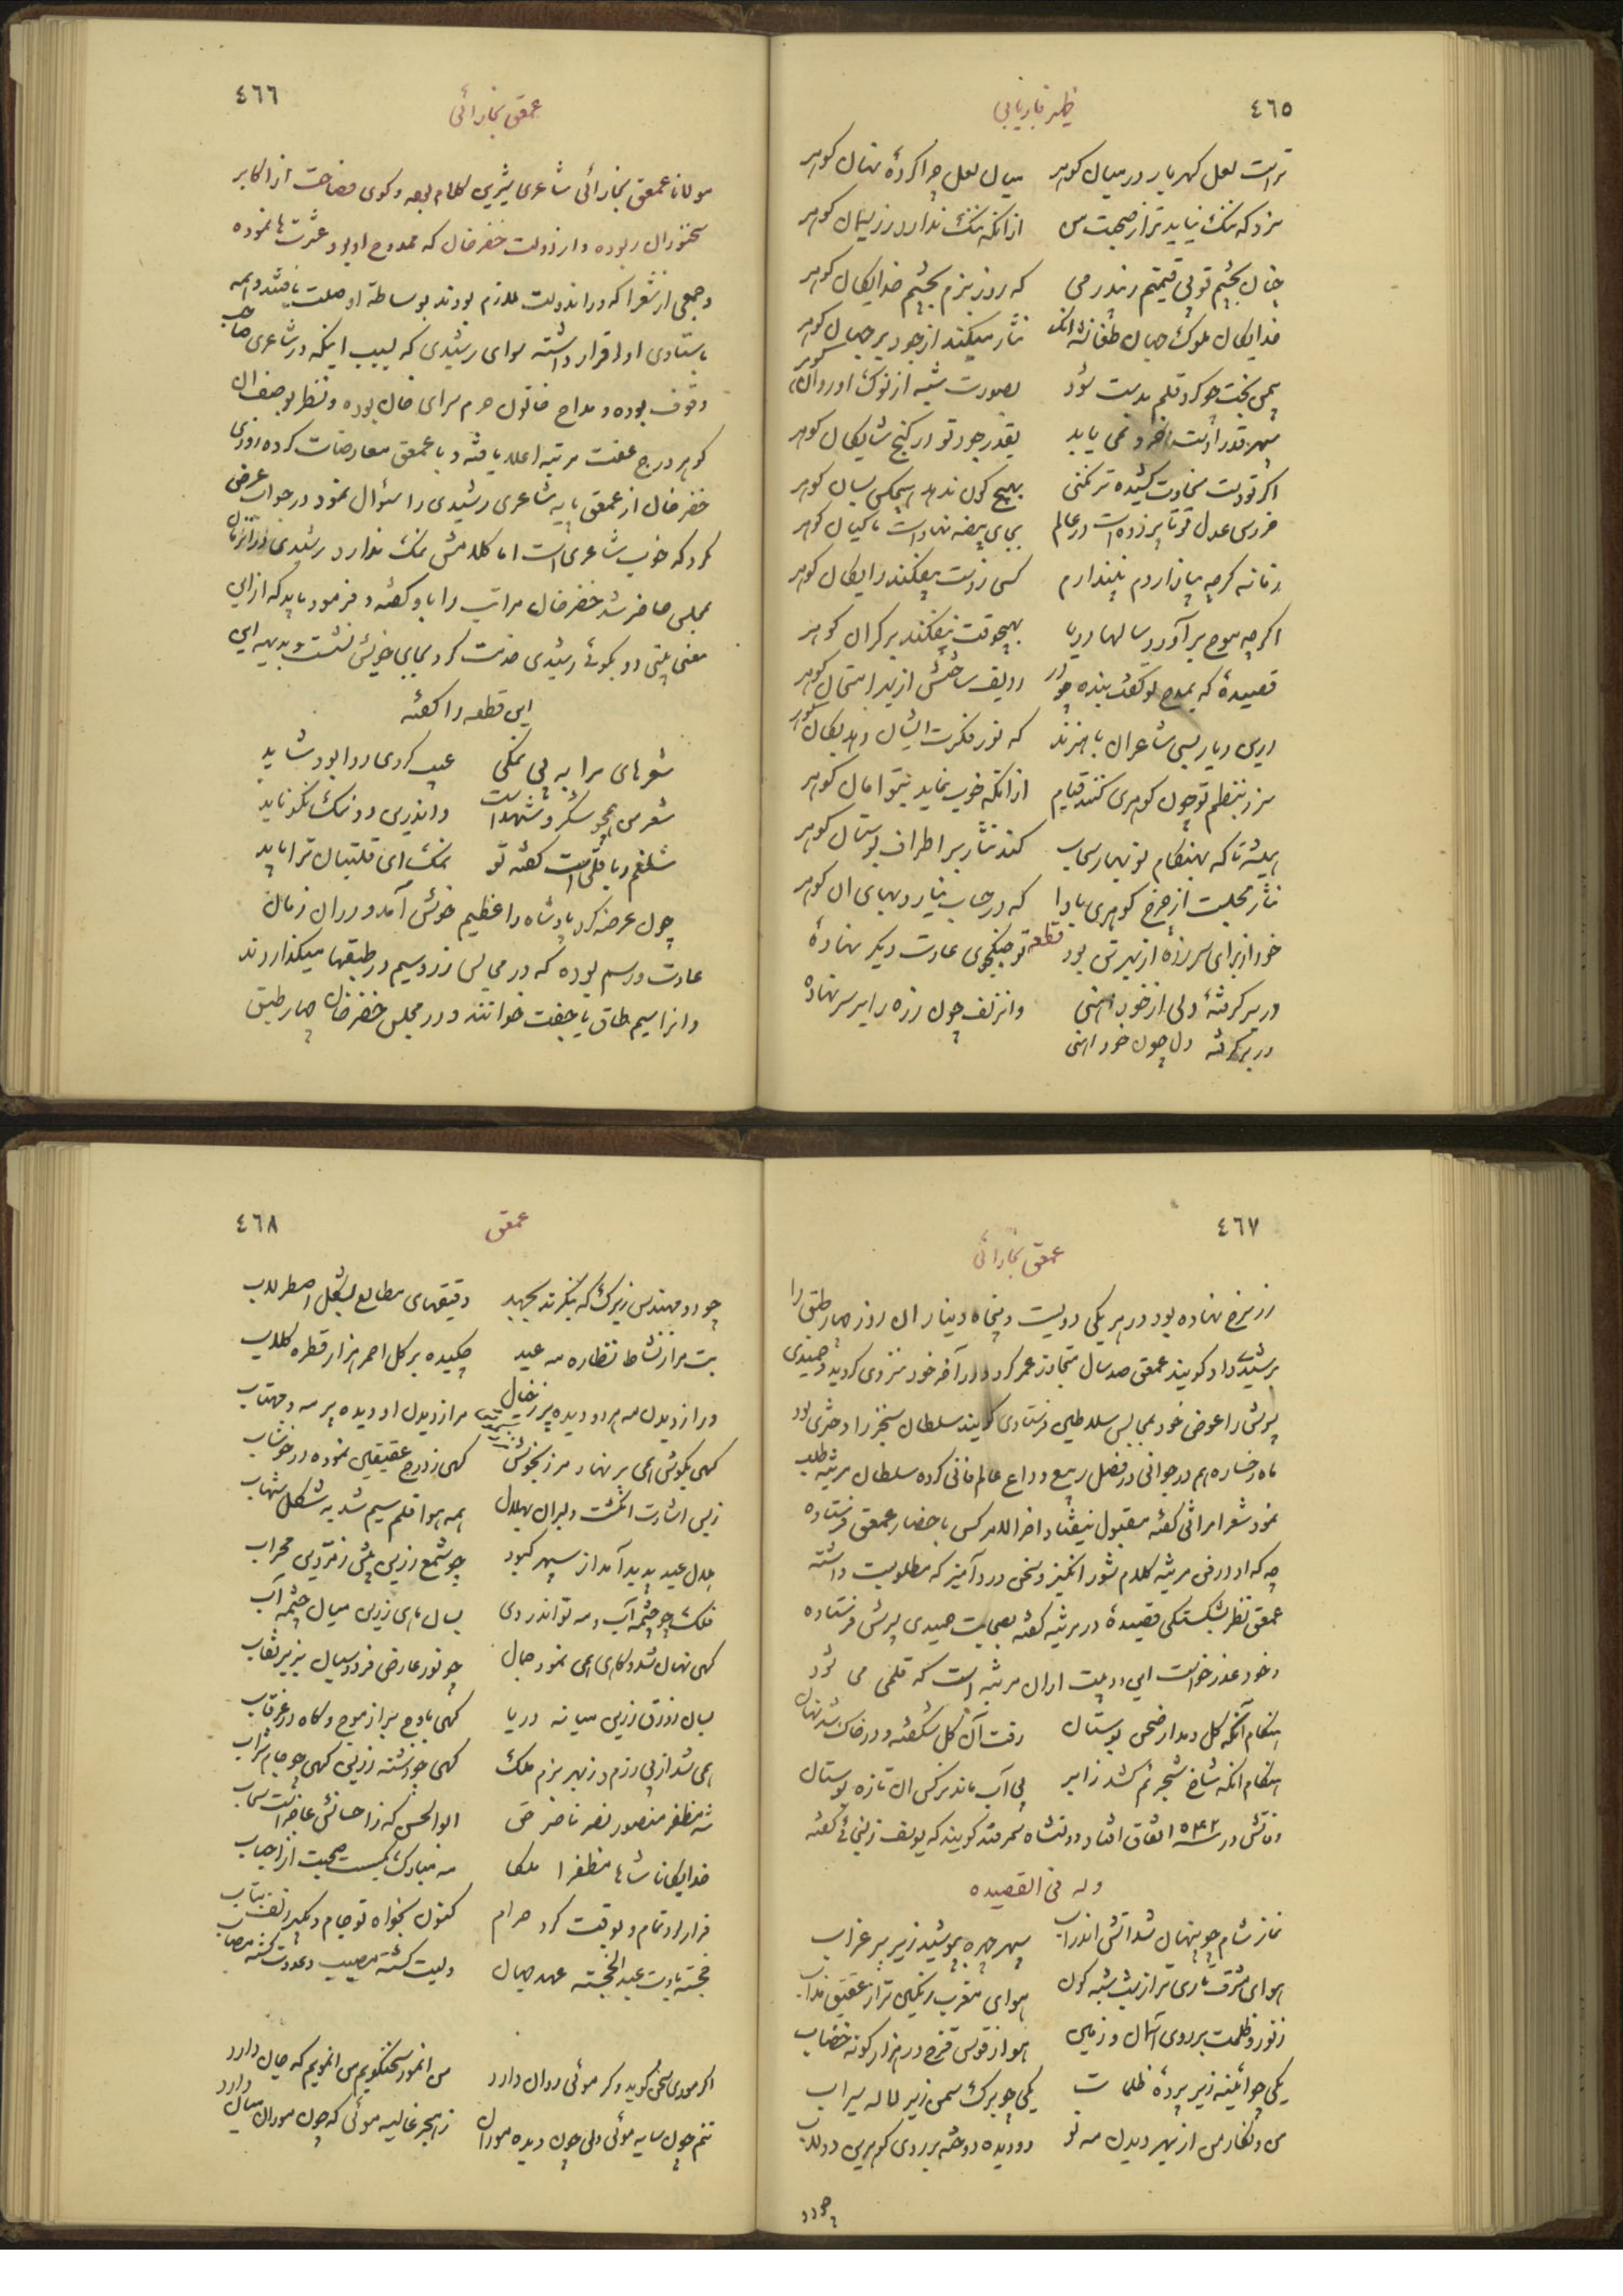 ٤٦٥
ظهیر فاریابی
تراست لعل گهربار در میان گوهر میان لعل چرا کردهٔ نهان گوهر
سزد که ننگ نیاید ترا ز صحبت من از آنکه ننگ ندارد ز ریسمان گوهر
چنان بچشم تو بی قیمتم که روز بزم بچشم خدایگان گوهر
خدایگان ملوک جهان طغانشه آنک نثار میکند از جود بر جهان گوهر
بیمن بخت چو کرد قلم بدست شود بصورت شبه از نوک او روان گوهر
سپهر قدرا بقدر جود تو در گنج شایگان گوهر
اگر نه دست سخاوت کشیده تر نکنی بهیچ کون ندهد هیچکس بسان گوهر
خروس عدل تو تا پر زده است در عالم بجای بیضه نهاد است ماکیان گوهر
زمانه گرچه بیازاردم نیندازم کسی ز دست نیفکند رایگان گوهر
اگرچه موج برآورد سالها دریا بهیچوقت نیفکند بر کران گوهر
قصیدهٔ که بمدح تو گفت بنده ردیف ساختش از بهر امتحان گوهر
درین دیار بسی شاعران باهنرند که نور فکرت ایشان دهد بکان گوهر
سزد بنظم تو چون گوهری کنند قیام از آنکه خوب نماید گوهر
همیشه تا که بهنگام نوبهار سحاب کند نثار بر اطراف بوستان گوهر
نثار مجلست از چرخ گوهری بادا که در حساب نیارد بهای آن گوهر
قطعه
خود از برای سر زره از بهر تن بود تو جنگجوی عادت دیگر نهادهٔ
در بر گرفتهٔ دلی از خود آهنی وانزلف چون زره را بر سر نهاده
در بر گرفته دل چون خود آهنی
٤٦٦
عمعق بخارائی
مولانا عمعق بخارائی شاعری شیرین کلام بوده و گوی فصاحت از اکابر
سخنوران ربوده و از دولت خضرخان که ممدوح او بود عشرتها نموده
و جمعی از شعرا که در آندولت ملازم بودند بوساطهٔ او صلت یافتند و همه
باستادی او اقرار داشته سوای رشیدی که بسبب اینکه در شاعری صاحب
وقوف بوده و مداح خاتون حرم سرای خان بوده و نظر بوصف آن
گوهر درج عفت مرتبه اعلا یافته و با عمعق معارضات کرده روزی
خضرخان از عمعق پایه شاعری رشیدی را سئوال نمود در جواب عرض
کرد که خوب شاعری است اما کلامش نمک ندارد رشیدی
بمجلس حاضر شد خضرخان مراتب را باو گفته و فرمود باید که ازین
معنی بیتی دو بگوئی رشیدی خدمت کرد بجای خویش نشست و بدیهه این
این قطعه را گفته
شعرهای مرا به بی نمکی عیب کردی روا بود شاید
شعر من همچو شکر و شهد است واندرین دو نمک نکو ناید
شلغم و باقلی است گفته تو نمک ای قلتبان ترا باید
چون عرض کرد پادشاه را عظیم خوش آمد و در آن زمان
عادت و رسم بوده که در مجالس زر و سیم در طبقها میگذاردند
و آنرا سیم طاق یا جفت خوانند و در مجلس خضرخان چهار طبق
٤٦٧
عمعق بخارائی
زر سرخ نهاده بود در هر یکی دویست و پنجاه دینار آن روز چهار طبق را
برشیدی داد گویند عمعق صد سال متجاوز عمر کرد و در آخر خود منزوی گردیده و حمیدی
پسرش را عوض خود بمجالس سلاطین فرستادی گویند سلطان سنجر را دختری بود
ماه رخساره هم در جوانی در فصل ربیع وداع عالم فانی کرده سلطان مرثیه طلب
نمود شعرا مراثی گفته مقبول نیفتاد آخر الامر کس باحضار عمعق فرستاده
چه که او در فن مرثیه کلام شور انگیز و سخن درد آمیز که مطلوبست داشته
عمعق نظر بشکستگی قصیدهٔ در مرثیه گفته بصحابت حمیدی پسرش فرستاده
و خود عذر خواست این دو بیت از آن مرثیه است که قلمی می شود
هنگام آنکه گل دمد از صحن بوستان رفت آن گل شکفته و در خاک شد نهان
هنگام آنکه شاخ شجر نم کشد ز ابر بی آب ماند نرگس آن تازه بوستان
وفاتش در سنه ۵۴۳ اتفاق افتاد و دولتشاه سمرقند گویند که یوسف زلیخائی گفته
وله فی القصیده
نماز شام چو پنهان شد آتش اندر آب سپهر چهره بپوشید زیر پر غراب
هوای مشرق تاری تر از شبه گون هوای مغرب رنگین تر از عقیق مذاب
ز نور و ظلمت بر روی آسمان و زمین هوا ز قوس قزح در هزار گونه خضاب
یکی چو آئینه زیر پردهٔ ظلمات یکی چو برگ سمن زیر لاله سیراب
من و نگار من از بهر دیدن مه نو دو دیده دوخته بر روی گوهرین دولاب
چو دو
٤٦٨
عمعق
چو دو مهندس زیرک که بنگرند بجهد دقیقهای مطالع بشکل اصطرلاب
بت مرا ز نشاط نظاره مه عید چکیده بر گل احمر هزار قطره گلاب
ورا ز دیدن مه هر دو دیده پر ز خیال مرا ز دیدن او دیده پر مه و مهتاب
گهی بگوش همی بر نهاد مرزنگوش گهی ز درج عقیقین نموده در خوشاب
ز بس اشارت انگشت دلبران بهلال همه هوا قلم سیم شد به شکل شهاب
هلال عید پدید آمد از سپهر کبود چو شمع زرین پیش زمردین محراب
فلک چو چشمه آب و مه نو اندر وی بسان ماهی زرین میان چشمه آب
گهی نهان شد و گاهی همی نمود جمال چو نور عارض فردوسیان بزیر نقاب
بسان زورق زرین میانه دریا گهی باوج بر از موج و گاه در غرقاب
همی شد از پی رزم و ز بهر بزم ملک گهی چو دشنه زرین گهی چو جام شراب
شه مظفر منصور نصر ناصر حق ابوالحسن که ز احسانش عاجز است سحاب
خدایگانا شاها مظفرا ملکا مه مبارک بگسست صحبت از احباب
قرار داد تمام و بوقت کرد حرام کنون بخواه تو جام و بگیر زلف بتاب
خجسته بادت عید ای خجسته عهد جهان ولیت گشته مصیب و عدوت گشته مصاب
اگر موری سخن گوید و گر موئی روان دارد من آنمور سخنگویم من آنمویم که جان دارد
تنم چون سایه موئی دلی چون دیده موران ز هجر غالیه موئی که چون موران میان دارد